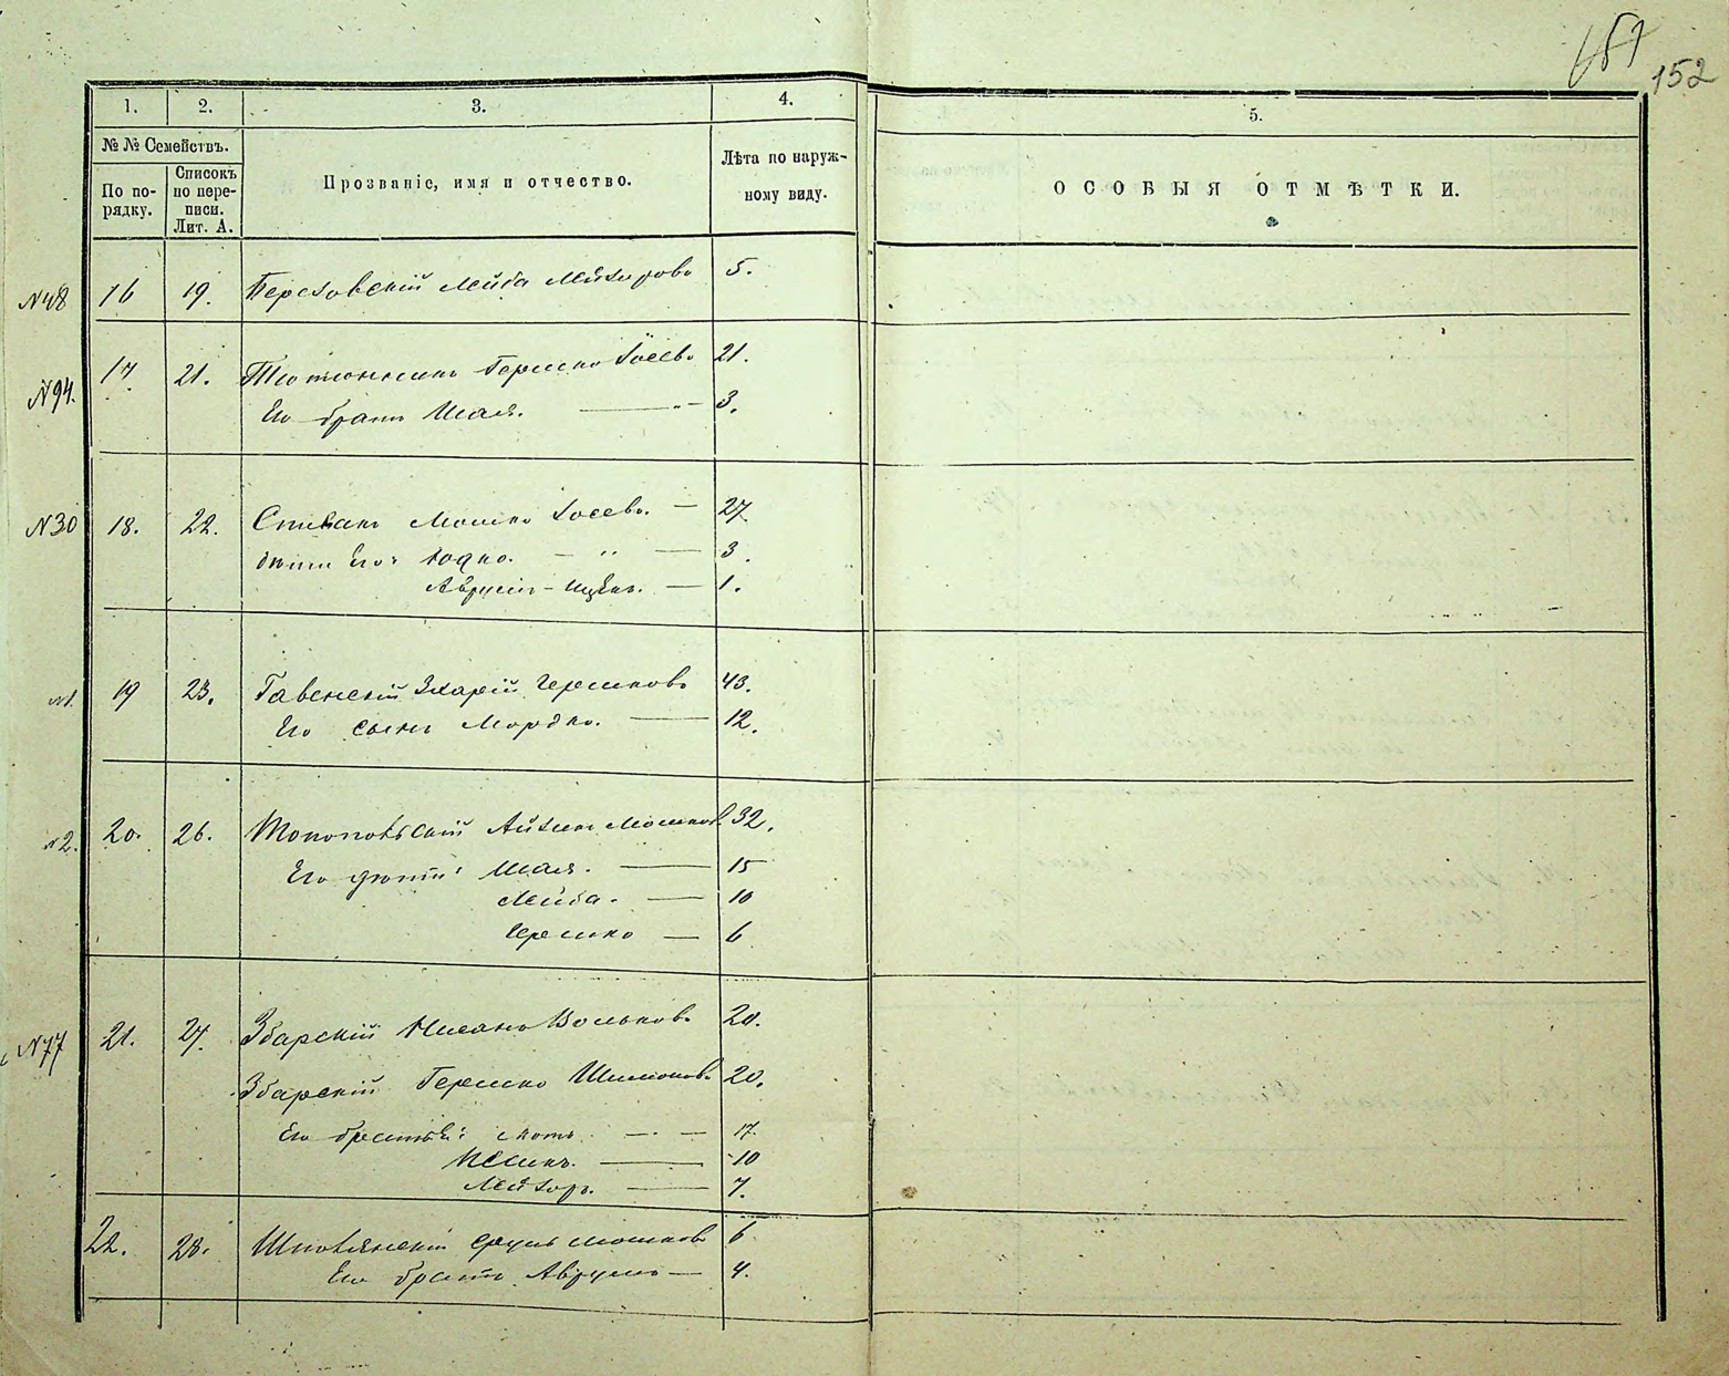 151
152
1. 2. 3. 4. 5.
№ № Семействъ.
По по-
рядку.
Списокъ
по пере-
писи.
Лит. А.
Прозваніе, имя и отчество.
Лѣта по наруж-
ному виду.
ОСОБЫЯ ОТМѢТКИ.
№48 16 19. Березовскій Лейба Лейзоровъ 5.
№94. 17. 21. Гершко Іосевъ 21.
Его братъ Шая. 3.
№30 18. 22. Спивакъ Мошко Іосевъ. — 27
дѣти Его: — " — 3.
Аврумъ-Ицекъ. — 1.
№1. 19 23. Гавенскій Зхарій Гершковъ 43.
Его сынъ Мордко. — 12.
№2. 20. 26. Айзикъ Мошков. 32.
Его дѣти: Шая. — 15
Лейба. — 10
Гершко — 6
№77 21. 27. Збарскій Нисанъ Вольковъ 20.
Збарскій Гершко Шимоновъ 20.
Его братья: — 17.
— 10
Лейзоръ. — 7.
22. 28. Сруль Мошковъ 6
Его братъ Аврумъ — 4.